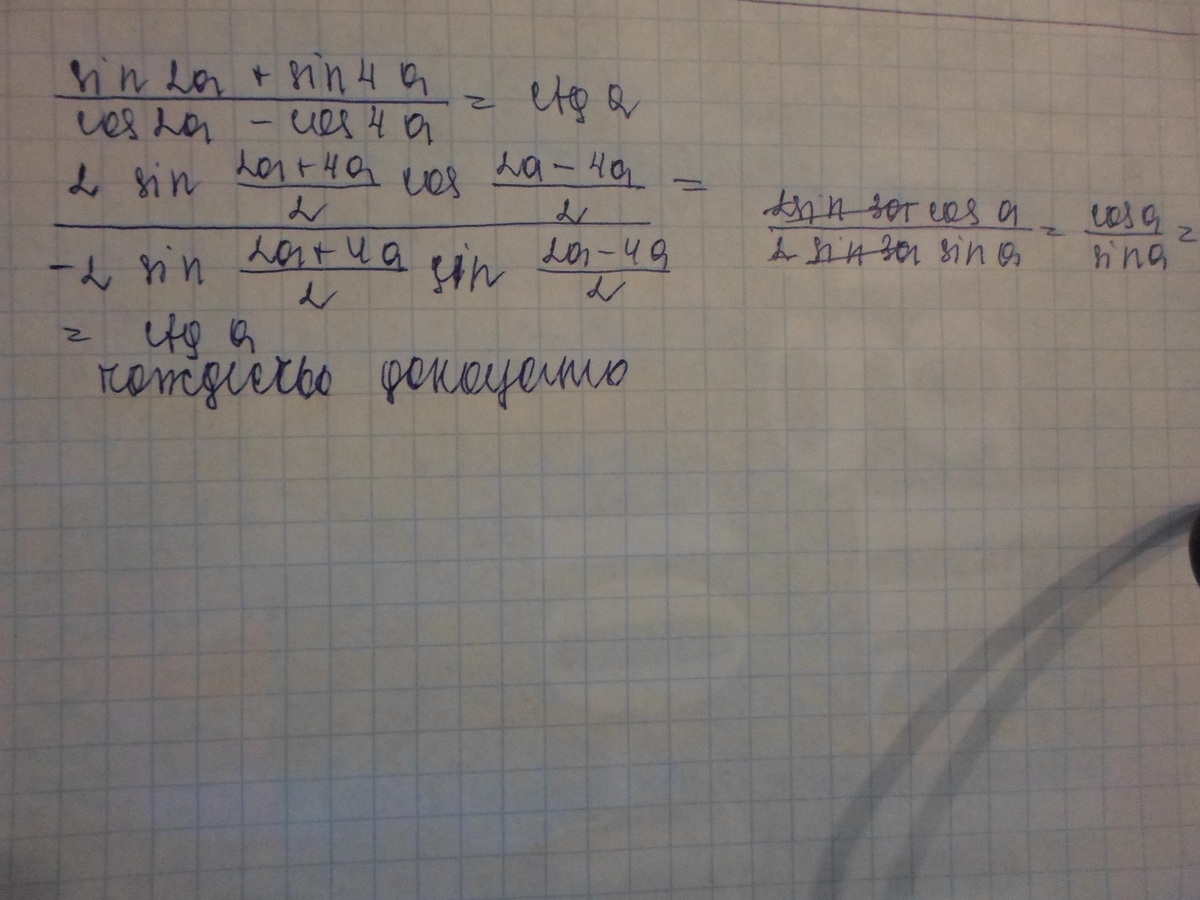 sin 2a + sin 4a / cos 2a - cos 4a = ctg a
2 sin (2a+4a)/2 cos (2a-4a)/2 / -2 sin (2a+4a)/2 sin (2a-4a)/2 = 2 sin 3a cos a / 2 sin 3a sin a = cos a / sin a =
= ctg a
тождество доказано